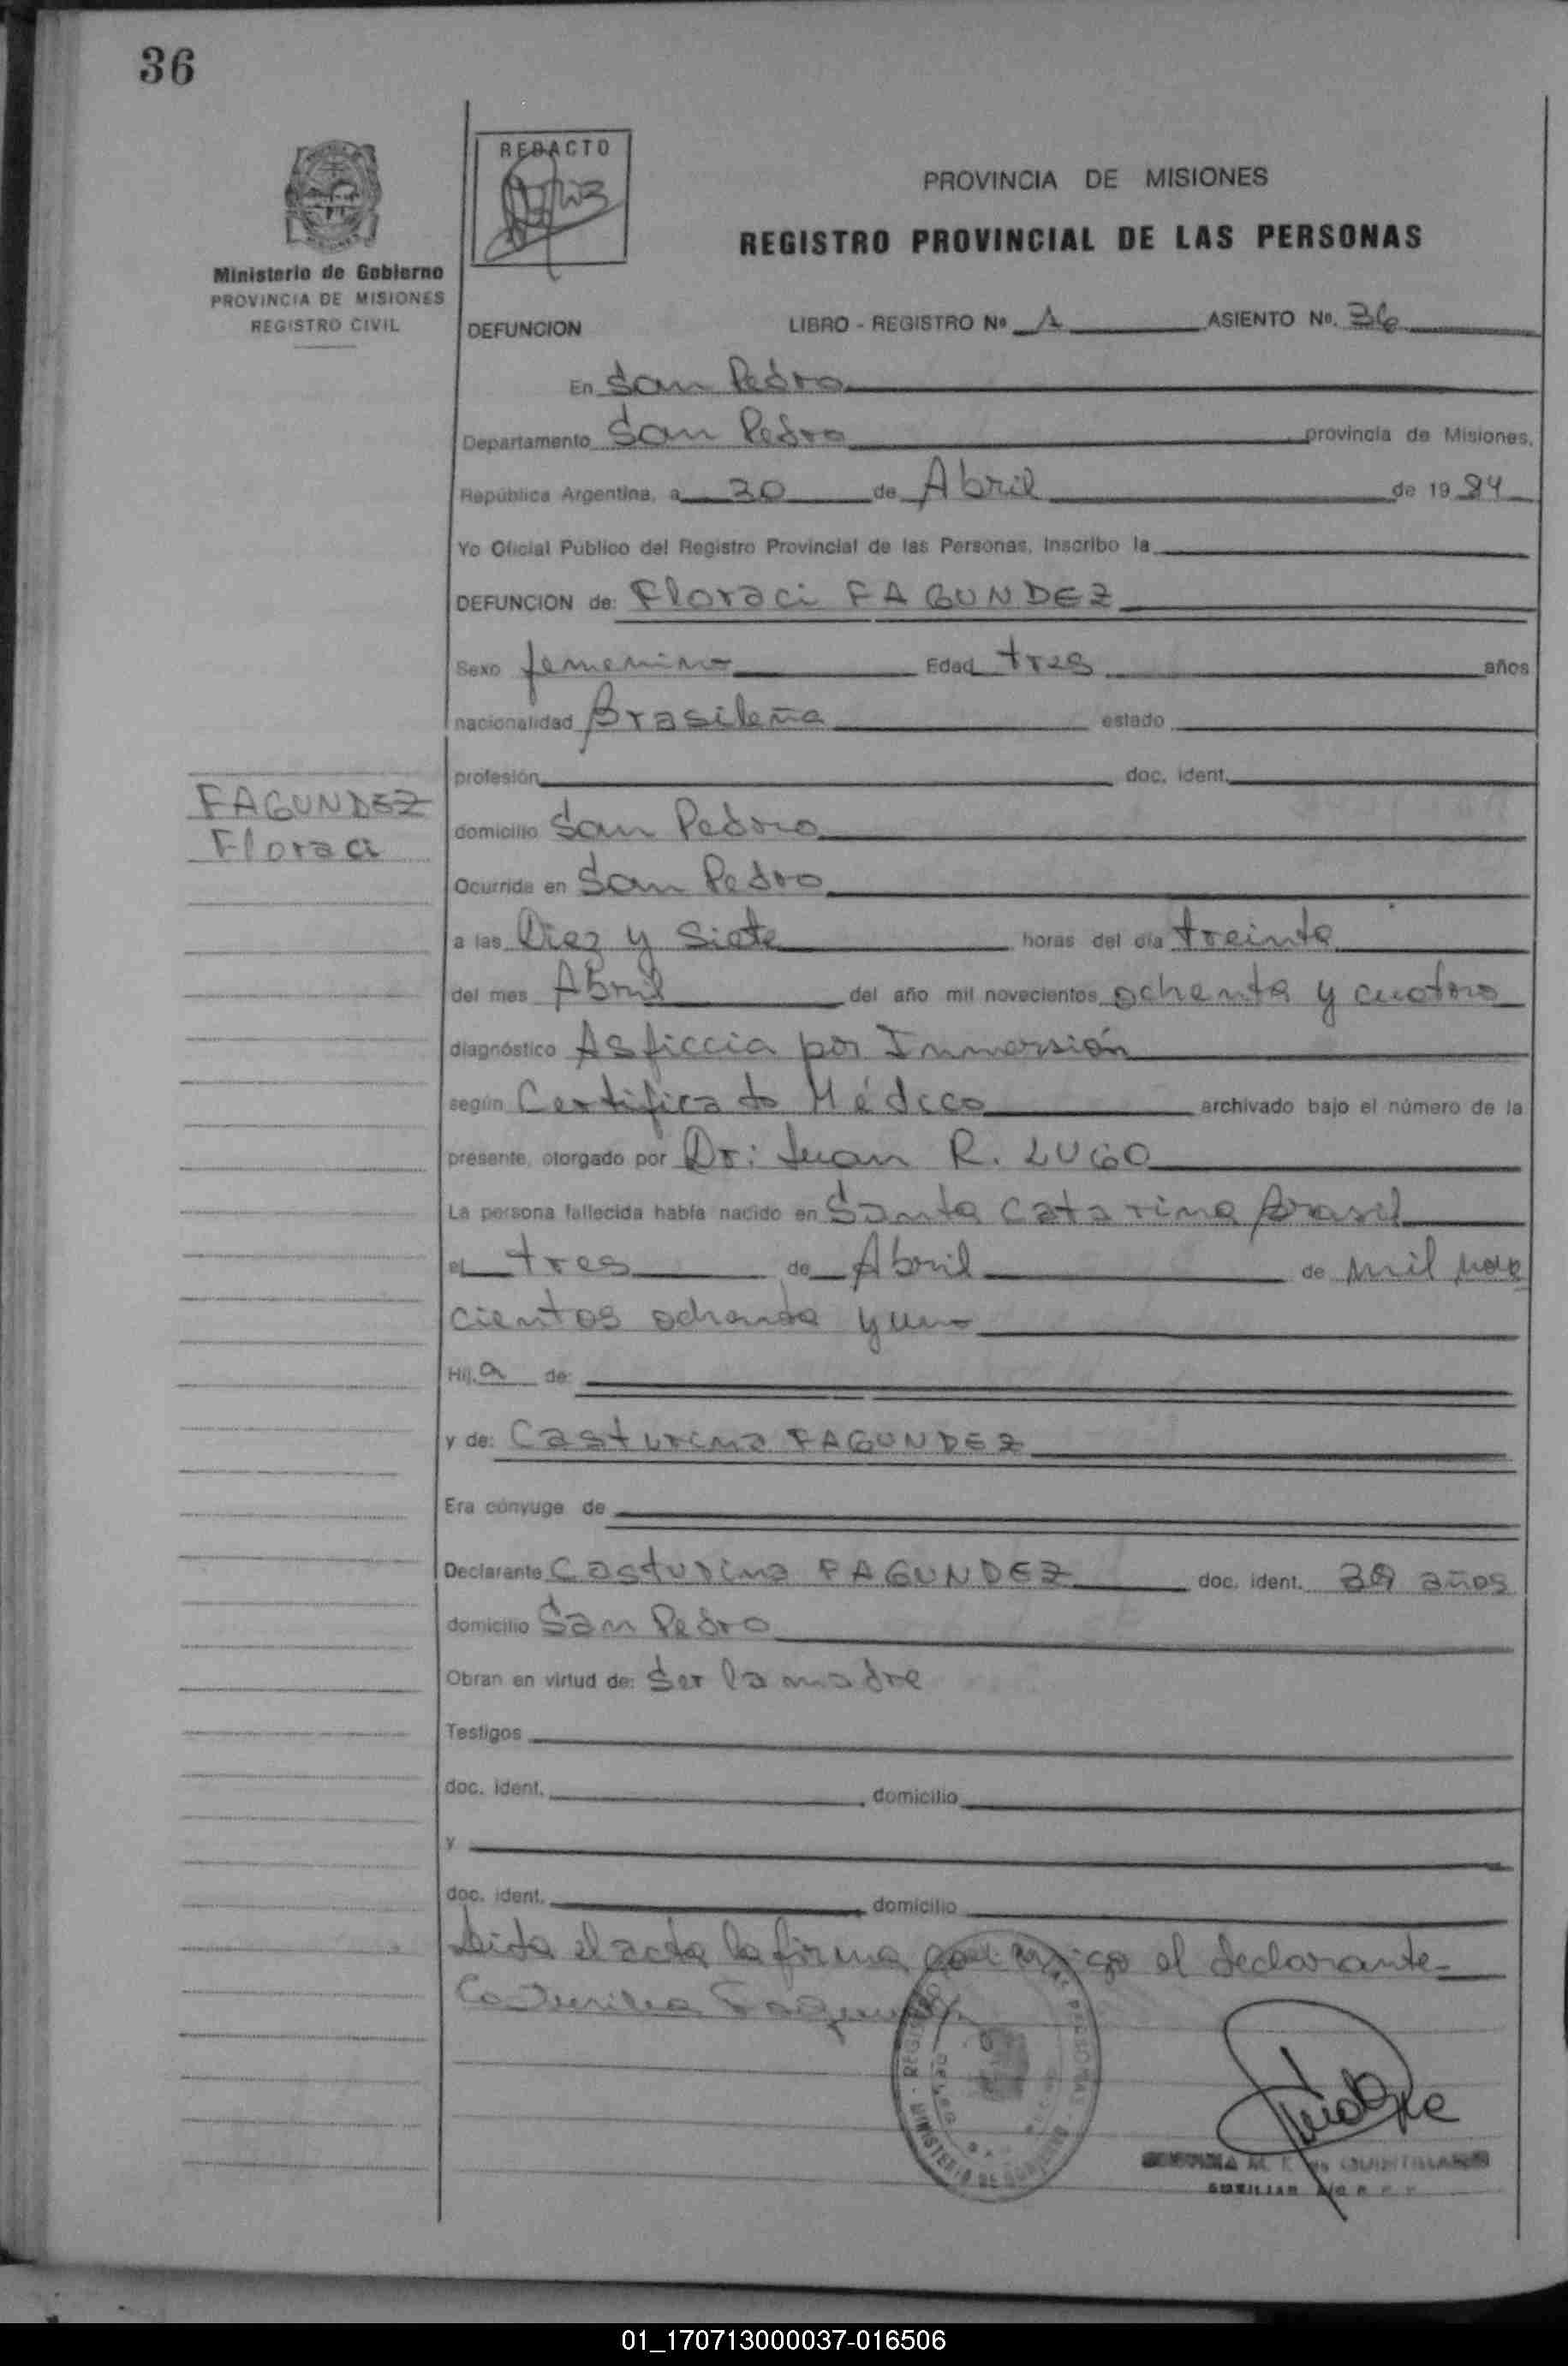 36
REDACTO
Ministerio de Gobierno
PROVINCIA DE MISIONES
REGISTRO CIVIL
PROVINCIA DE MISIONES
REGISTRO PROVINCIAL DE LAS PERSONAS
DEFUNCION LIBRO - REGISTRO Nº 1 ASIENTO Nº. 36
En San Pedro
Departamento San Pedro provincia de Misiones,
República Argentina, a 30 de Abril de 19 84
Yo Oficial Público del Registro Provincial de las Personas, Inscribo la
DEFUNCION de: Floraci FAGUNDEZ
Sexo femenino Edad tres años
nacionalidad Brasileña estado
profesión doc. ident.
FAGUNDEZ
Floraci
domicilio San Pedro
Ocurrida en San Pedro
a las Diez y Siete horas del día treinta
del mes Abril del año mil novecientos ochenta y cuatro
diagnóstico Asficcia por Inmersión
según Certificado Médico archivado bajo el número de la
presente, otorgado por Dr: Juan R. LUGO
La persona fallecida había nacido en Santa Catarina Brasil
el tres de Abril de mil nove
cientos ochenta y uno
Hij a de:
y de: Casturina FAGUNDEZ
Era cónyuge de
Declarante Casturina FAGUNDEZ doc. ident. 39 años
domicilio San Pedro
Obran en virtud de: Ser la madre
Testigos
doc. ident. domicilio
y
doc. ident. domicilio
Leida el acta la firma conmigo el declarante
MINISTERIO DE GOBIERNO
AUXILIAR
01_170713000037-016506